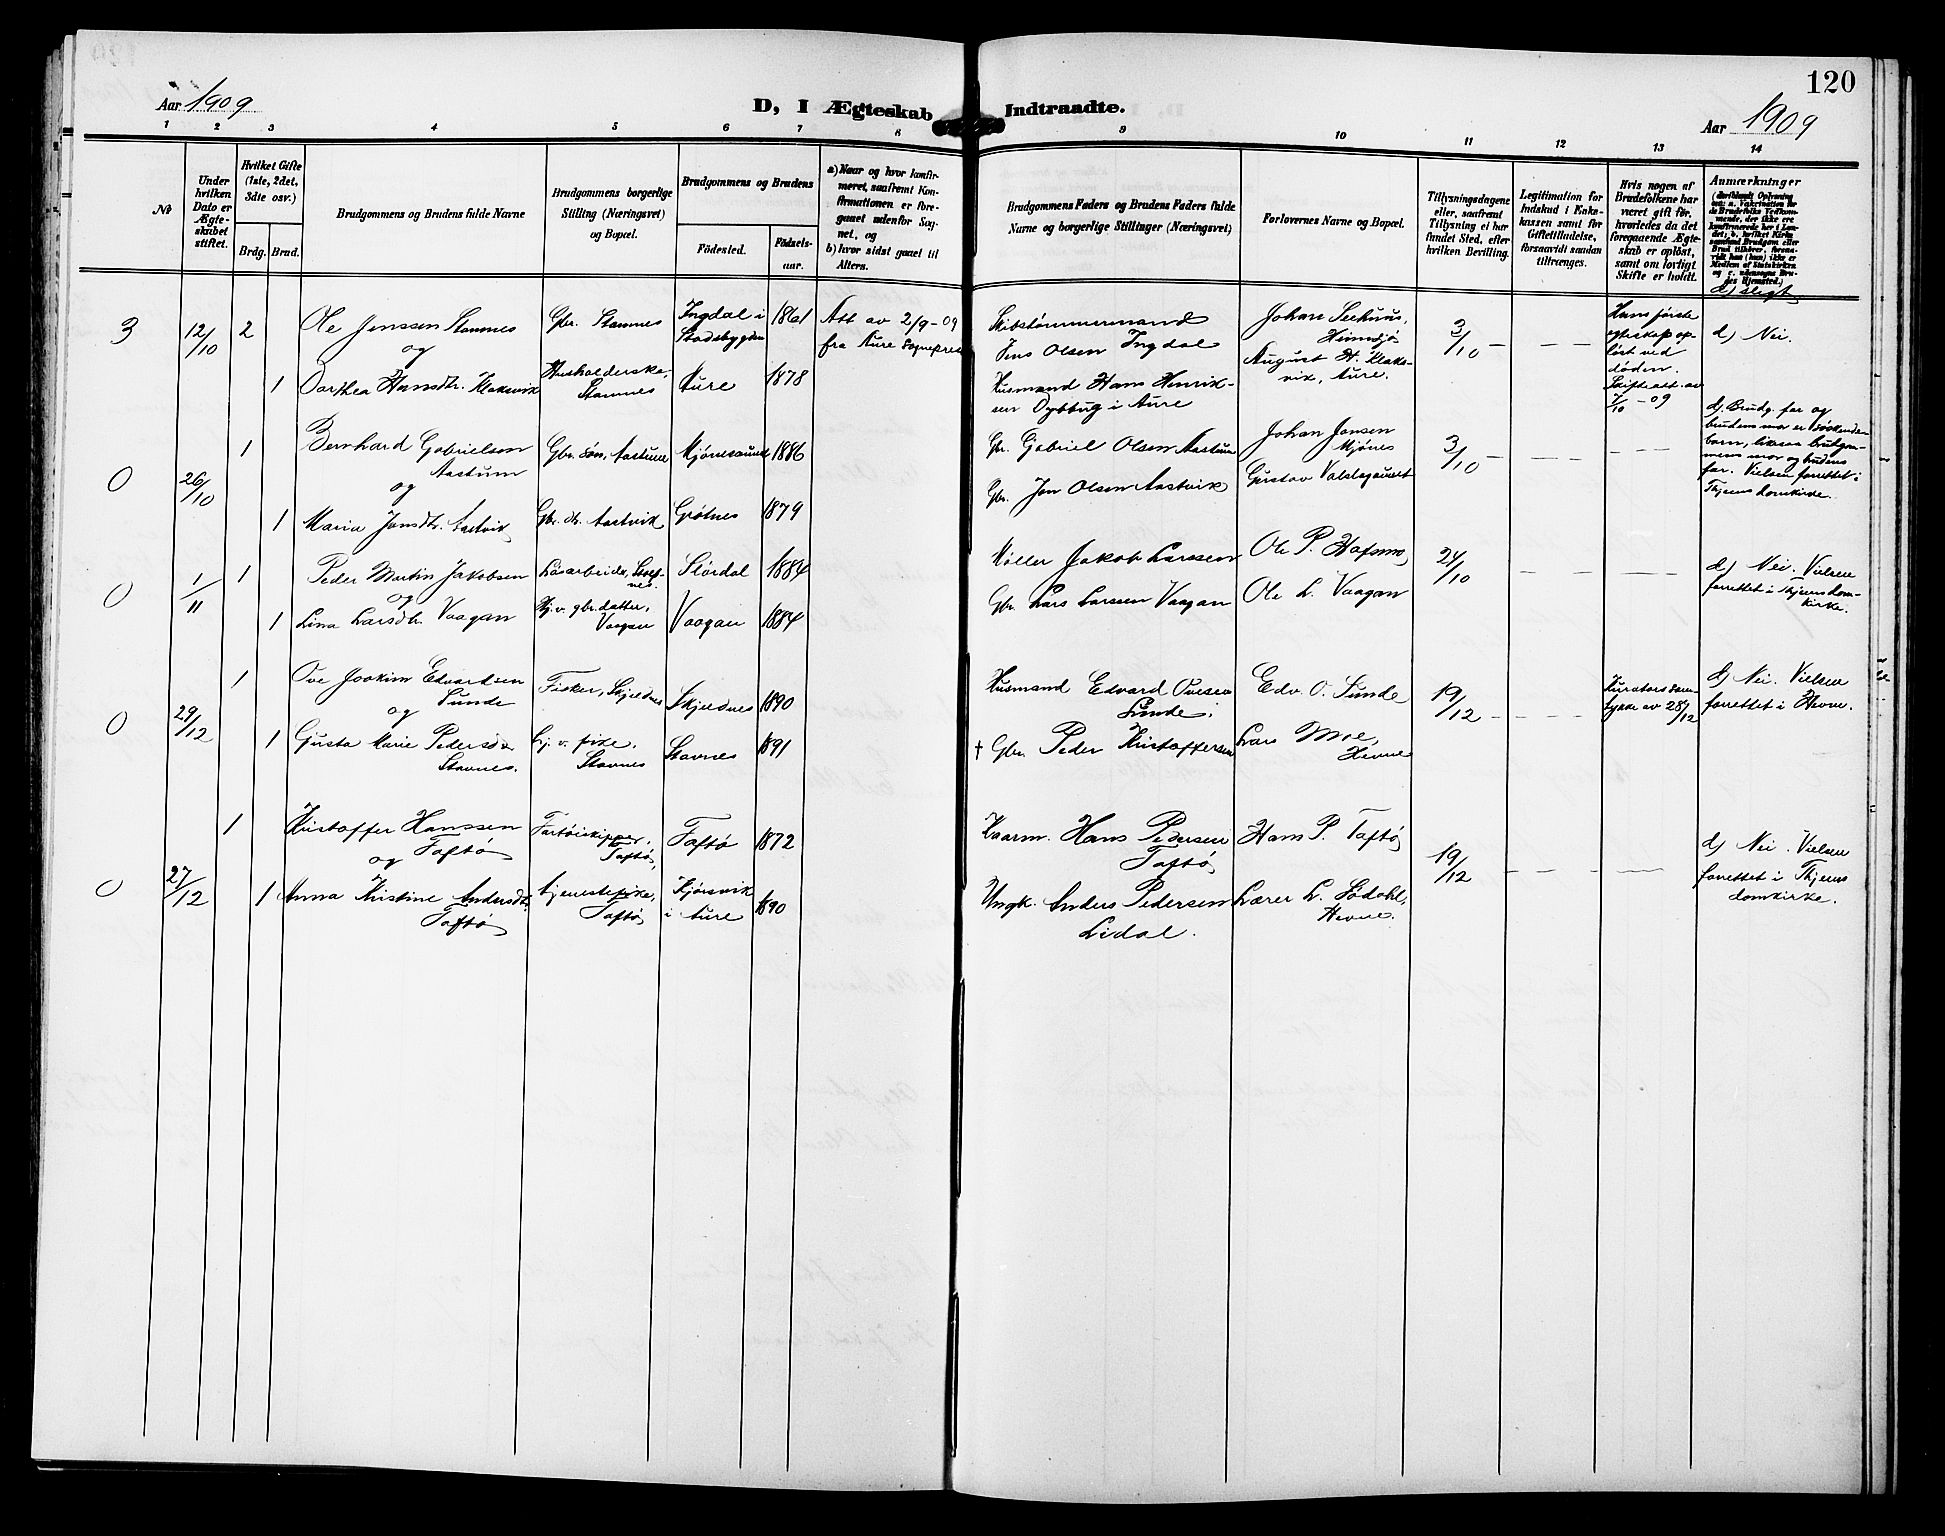 120
Aar 1909
D, I Ægteskab Indtraadte.
Aar 1909
1 2 3 4 5 6 7 8 9 10 11 12 13 14
№
Under hvilken Dato er Ægteskabet stiftet.
Hvilket Gifte (1ste, 2det, 3die osv.)
Brdg. Brud.
Brudgommens og Brudens fulde Navne
Brudgommens borgerlige Stilling (Næringsvei) og Bopæl.
Brudgommens og Brudens
Fødested. Fødselsaar.
a) Naar og hvor konfirmeret, saafremt Konfirmationen er foregaaet udenfor Sognet, og
b) hvor sidst gaaet til Alters.
Brudgommens Faders og Brudens Faders fulde Navne og borgerlige Stillinger (Næringsvei)
Forlovernes Navne og Bopæl.
Tillysningsdagene eller, saafremt Tillysning ei har fundet Sted, efter hvilken Bevilling.
Legitimation for Indskud i Enkekassen samt for Giftetilladelse, forsaavidt saadan tiltrænges.
Hvis nogen af Brudefolkene har været gift før, hvorledes da det foregaaende Ægteskab er opløst, samt om lovligt Skifte er holdt.
Anmærkninger
d) slegt
3 12/10 2 Ole Jenssen Stamnes Gbr. Stamnes Ingdal i Stadsbygden 1861 Att av 2/9-09 fra Aure Sognepres
og
1 Dorthea Hansdtr. Klaksvik Husholderske, Stamnes Aure 1878
Skibstømmermand Jens Olsen Ingdal
Husmand Hans Henriksen Dybbug i Aure
Johan Seehuus, Heimsjø
August H. Klaksvik, Aure.
3/10 – – – –
Hans første egteskap opløst ved døden. Skifteatt. av 7/10-09
d) Nei.
0 26/10 1 Bernhard Gabrielsen Aastum Gbr. søn, Aastum Mjønessund 1886
og
1 Maria Jonsdtr. Aastvik Gbr. dtr. Aastvik Grøtnes 1879
Gbr. Gabriel Olsen Aastum
Gbr. Jon Olsen Aastvik
Johan Jonsen Mjønes
Gustav Valslagauset
3/10 – – – – – – –
d) Brudg. far og brudens mor er søskendebarn, likesaa brudgommens mor og brudens far. Vielsen forrettet i Thjems domkirke.
0 1/11 1 Peder Martin Jakobsen Løsarbeider, Størdal 1884
og
1 Lina Larsdtr. Vaagan Hj.v. gbr. datter, Vaagan Vaagan 1884
Møller Jakob Larssen
Gbr. Lars Larssen Vaagan
Ole P. Hafsmo,
Ole L. Vaagan
24/10 – – – – – –
d) Nei. Vielsen forrettet i Thjems domkirke.
0 29/12 1 Ove Joakim Edvardsen Sunde Fisker, Skjeldnes Skjeldnes 1890
og
1 Gusta Marie Pedersdtr Stavnes. Hj. v. pike. Stavnes Stavnes 1891
Husmand Edvard Ovesen Sunde.
† Gbr. Peder Kristoffersen
Edv. O. Sunde
Lars Moe, Hevne
19/12 – – – –
Kurators samtykke av 28/12
d) Nei. Vielsen forrettet i Hevne.
0 27/12 1 Kristoffer Hanssen Taftø Fartøiskipper, Taftø, Taftø 1872
og
1 Anna Kristine Andersdtr. Taftø tjenestepike, Taftø Kjørsvik i Aure 1890
Kaarm. Hans Pedersen Taftø
Ungk. Anders Pedersen Lidal.
Hans P. Taftø
Lærer L. Sødahl, Hevne.
19/12 – – – – – –
d) Nei. Vielsen forrettet i Thjems domkirke.